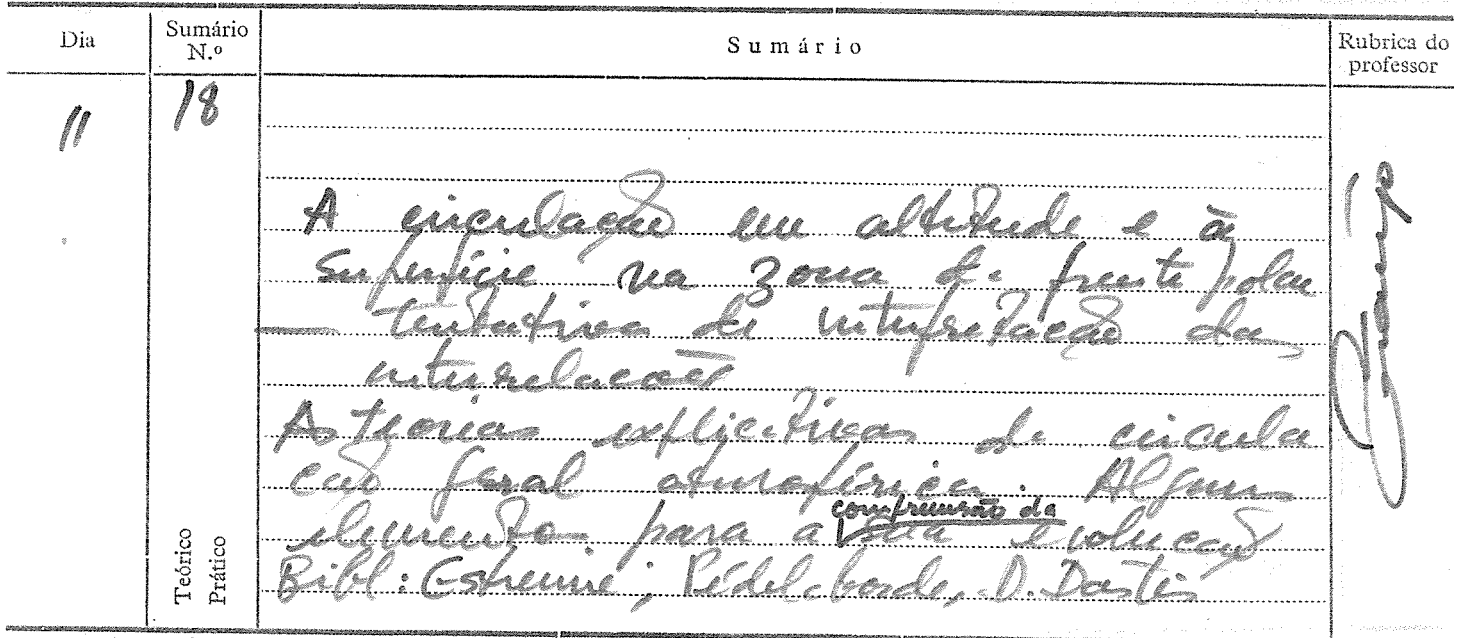 Dia
Sumário N.º
Sumário
Rubrica do professor
11
18
A circulação em altitude e à
superfície na zona de frente polar
— tentativa de interpretação das
interrelações
As teorias explicativas da circula
ção geral atmosférica. Alguns
elementos para a compreensão da sua evolução
Bibl: Estienne; Pédelaborde, D.
Teórico
Prático